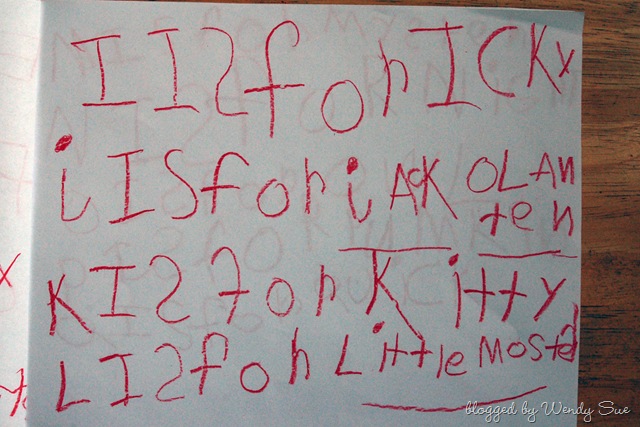 I IS for ICKy
j IS for jAcK OLAN
ten
K IS for Kitty
L IS for Little Mosta
blogged by Wendy Sue